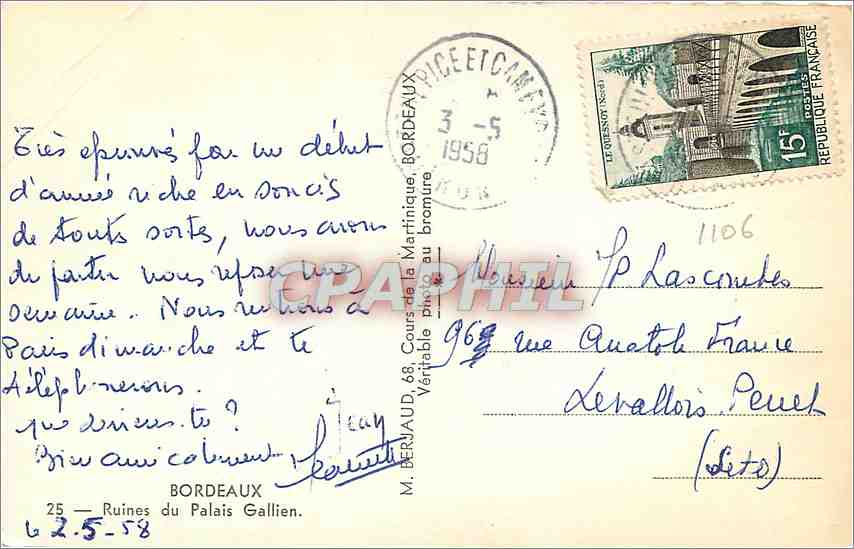 Très épuisés par un début
d'année riche en soucis
de toutes sortes, nous avons
du partir nous reposer une
semaine. Nous rentrons à
Paris dimanche et te
téléphonerons.
que deviens-tu?
Bien amicalement
Jean
BORDEAUX
25 — Ruines du Palais Gallien.
le 2-5-58
M. BERJAUD, 68, Cours de la Martinique, BORDEAUX
Véritable photo au bromure
CPAPHIL
PICE ET CAMEYRAC
3 -5
1958
LE QUESNOY (Nord)
15F
POSTES
REPUBLIQUE FRANÇAISE
1106
Monsieur J P Lascombes
96 rue Anatole France
Levallois Perret
(Seine)